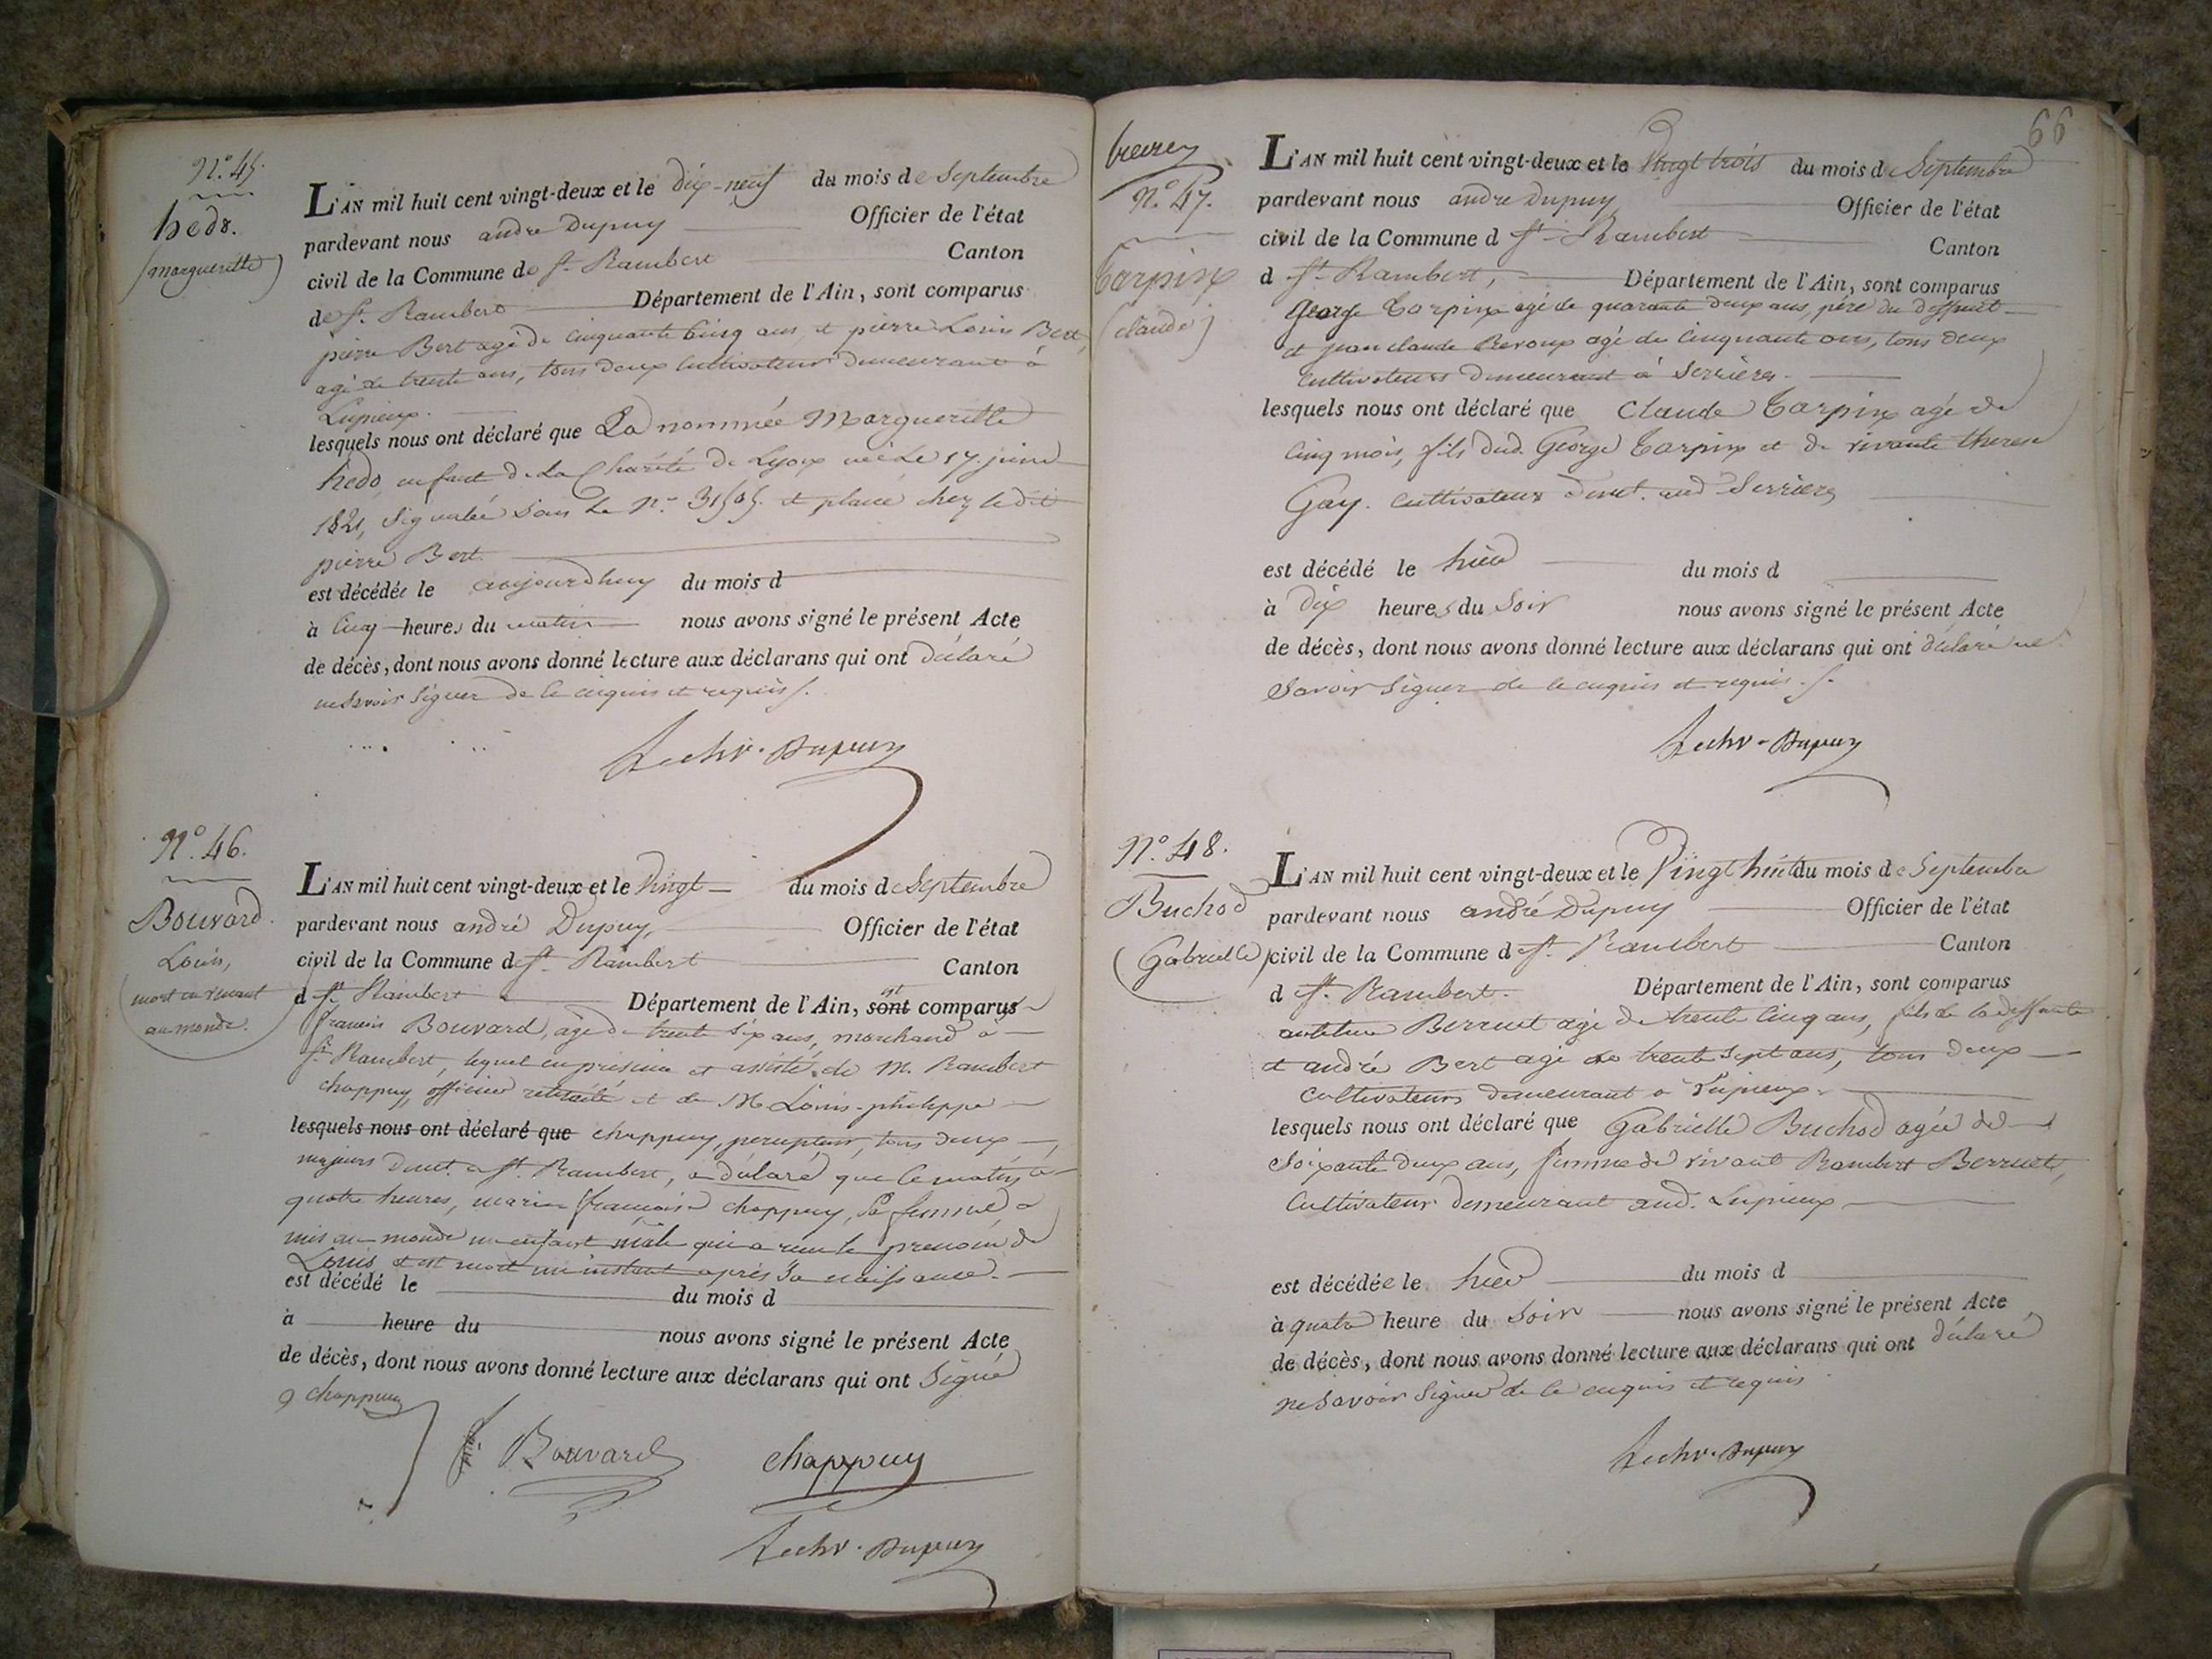 N.° 45.
hedo.
(margueritte)
L'AN mil huit cent vingt-deux et le dix-neuf du mois de Septembre
pardevant nous andré Dupuy Officier de l'état
civil de la Commune de St. Rambert Canton
de St. Rambert Département de l'Ain, sont comparus
pierre Bert agé de cinquante cinq ans, et pierre Louis Bert,
agé de trente ans, tous deux cultivateurs demeurant à
Lupieux.
lesquels nous ont déclaré que La nommée Margueritte
hedo, enfant de La Charité de Lyon née Le 17. juin
1821, Signalée sous Le N.° et placée chez ledit
pierre Bert.
est décédée le aujourdhuy du mois d
à cinq heures du matin nous avons signé le présent Acte
de décès, dont nous avons donné lecture aux déclarans qui ont déclaré
ne savoir signer de ce enquis et requis.
Dupuy
N.° 46.
Bouvard.
Louis,
mort en venant
au monde.
L'AN mil huit cent vingt-deux et le Vingt du mois de Septembre
pardevant nous andré Dupuy, Officier de l'état
civil de la Commune de St. Rambert Canton
d St. Rambert Département de l'Ain, sont est comparus
francois Bouvard, agé de trente six ans, marchand à
St. Rambert, lequel en présence et assisté de M. Rambert
chappuy, officier retraité et de M. Louis-philippe
lesquels nous ont déclaré que chappuy, percepteur, tous deux
majeurs demt. à St. Rambert, a déclaré que ce matin à
quatre heures, marie françoise chappuy, sa femme, a
mis au monde un enfant mâle qui a reçu le prenom de
Louis et est mort un instant après sa naissance.
est décédé le du mois d
à heure du nous avons signé le présent Acte
de décès, dont nous avons donné lecture aux déclarans qui ont Signé
chappuy
Bouvard chappuy
Dupuy
66
N.° 47.
Carpin
(claude)
L'AN mil huit cent vingt-deux et le Vingt trois du mois d Septembre
pardevant nous andré Dupuy Officier de l'état
civil de la Commune d St. Rambert Canton
d St. Rambert, Département de l'Ain, sont comparus
George Carpin agé de quarante deux ans, père du deffunt
et jean claude agé de Cinquante ans, tous deux
cultivateurs demeurant à Serrières.
lesquels nous ont déclaré que Claude Carpin agé de
Cinq mois, fils dud. George Carpin et de vivante therese
Gay. cultivateurs demt. aud Serrieres
est décédé le hier du mois d
à Dix heures du Soir nous avons signé le présent Acte
de décès, dont nous avons donné lecture aux déclarans qui ont déclaré ne
savoir signer de ce enquis et requis.
Dupuy
N.° 48.
Buchod
(Gabrielle)
L'AN mil huit cent vingt-deux et le Vingt huit du mois de Septembre
pardevant nous andré Dupuy Officier de l'état
civil de la Commune d St. Rambert Canton
d St. Rambert. Département de l'Ain, sont comparus
Berruet agé de trente Cinq ans, fils de la deffunte
et andré Bert agé de trente sept ans, tous deux
cultivateurs demeurant à Lupieux.
lesquels nous ont déclaré que Gabrielle Buchod agée de
Soixante deux ans, femme de vivant Rambert Berruet,
Cultivateur demeurant aud. Lupieux
est décédée le hier du mois d
à quatre heure du Soir nous avons signé le présent Acte
de décès, dont nous avons donné lecture aux déclarans qui ont déclaré
ne savoir signer de ce enquis et requis
Dupuy